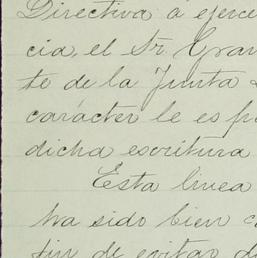 Directiva á ejerce
cia, el Sr. Gran
te de la Junta
caracter le es p
dicha escritura
Esta linea
ha sido bien c
fin de evitar d